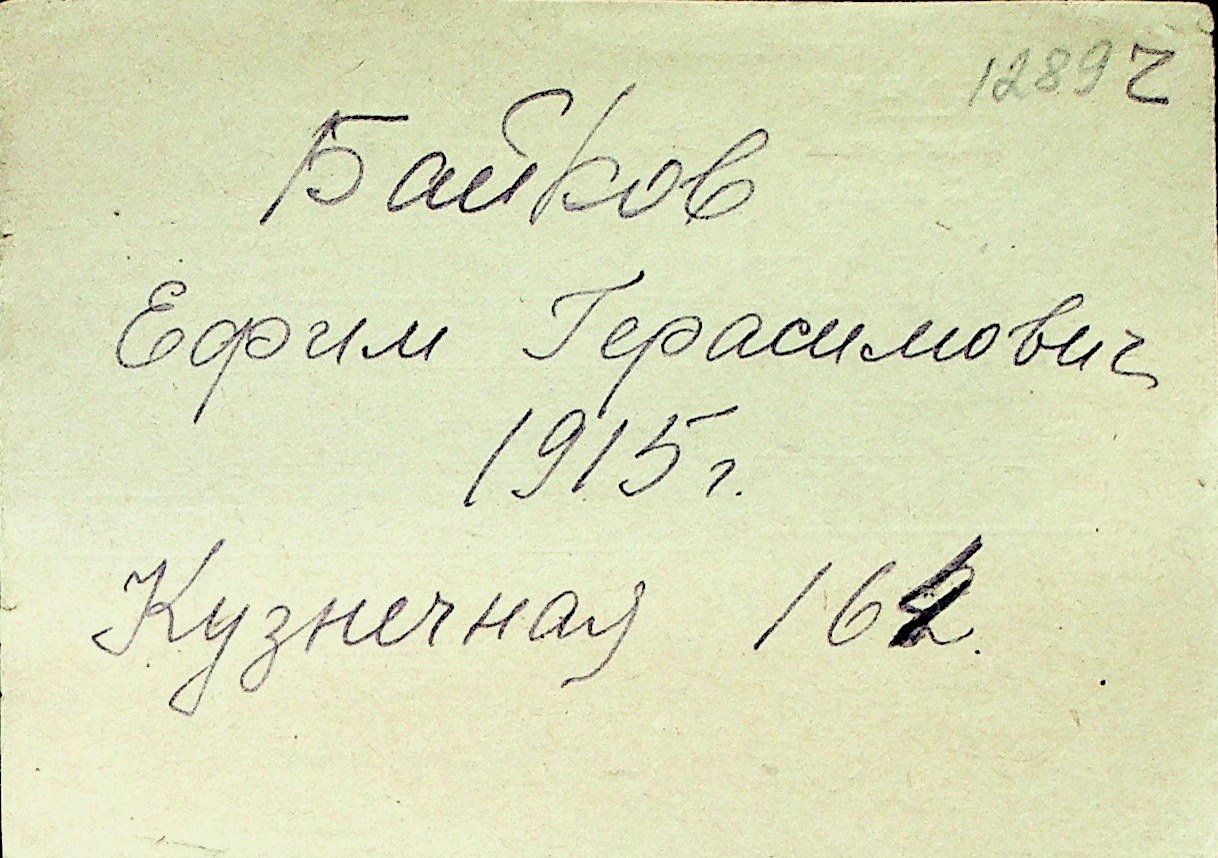 12897
Байков
Ефим Герасимович
1915 г.
Кузнечная